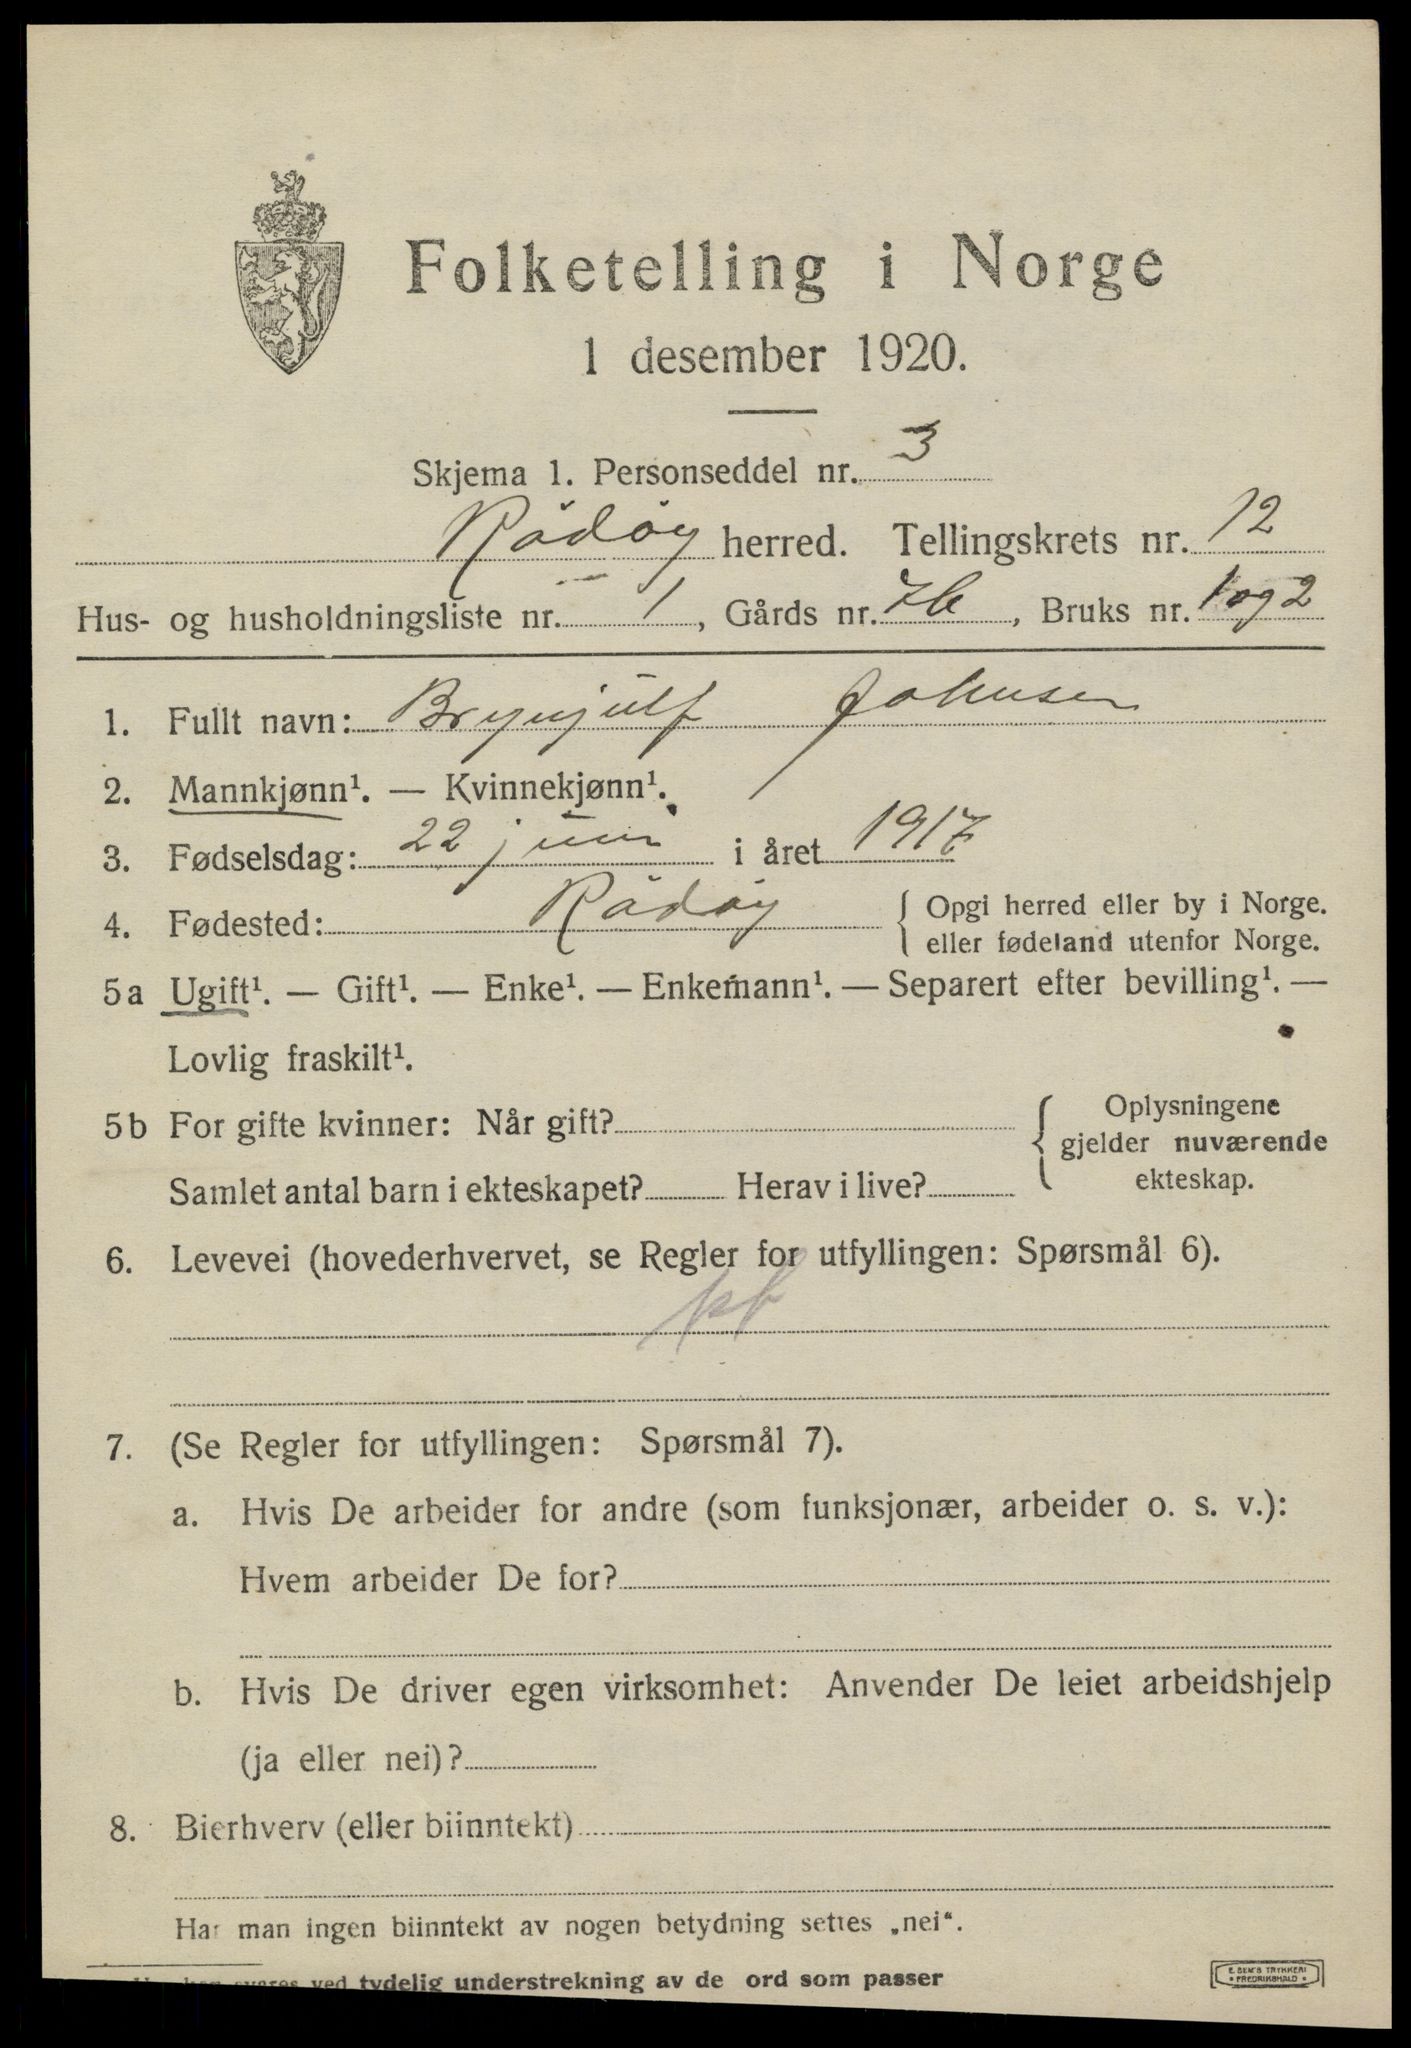 Folketelling i Norge
1 desember 1920.
Skjema 1. Personseddel nr. 3
Rødøy herred. Tellingskrets nr. 12
Hus- og husholdningsliste nr. 1, Gårds nr. 76, Bruks nr. 1 og 2
1. Fullt navn: Brynjulf Johnsen
2. Mannkjønn¹. — Kvinnekjønn¹.
3. Fødselsdag: 22 juni i året 1917
4. Fødested: Rødøy { Opgi herred eller by i Norge.
eller fødeland utenfor Norge.
5a Ugift¹. — Gift¹. — Enke¹. — Enkemann¹. — Separert efter bevilling¹. —
Lovlig fraskilt¹.
5b For gifte kvinner: Når gift? { Oplysningene
gjelder nuværende
Samlet antal barn i ekteskapet? Herav i live? ekteskap.
6. Levevei (hovederhvervet, se Regler for utfyllingen: Spørsmål 6).
7. (Se Regler for utfyllingen: Spørsmål 7).
a. Hvis De arbeider for andre (som funksjonær, arbeider o. s. v.):
Hvem arbeider De for?
b. Hvis De driver egen virksomhet: Anvender De leiet arbeidshjelp
(ja eller nei)?
8. Bierhverv (eller biinntekt)
Har man ingen biinntekt av nogen betydning settes „nei“.
svares ved tydelig understrekning av de ord som passer
E. SEM'S TRYKKERI
FREDRIKSHALD